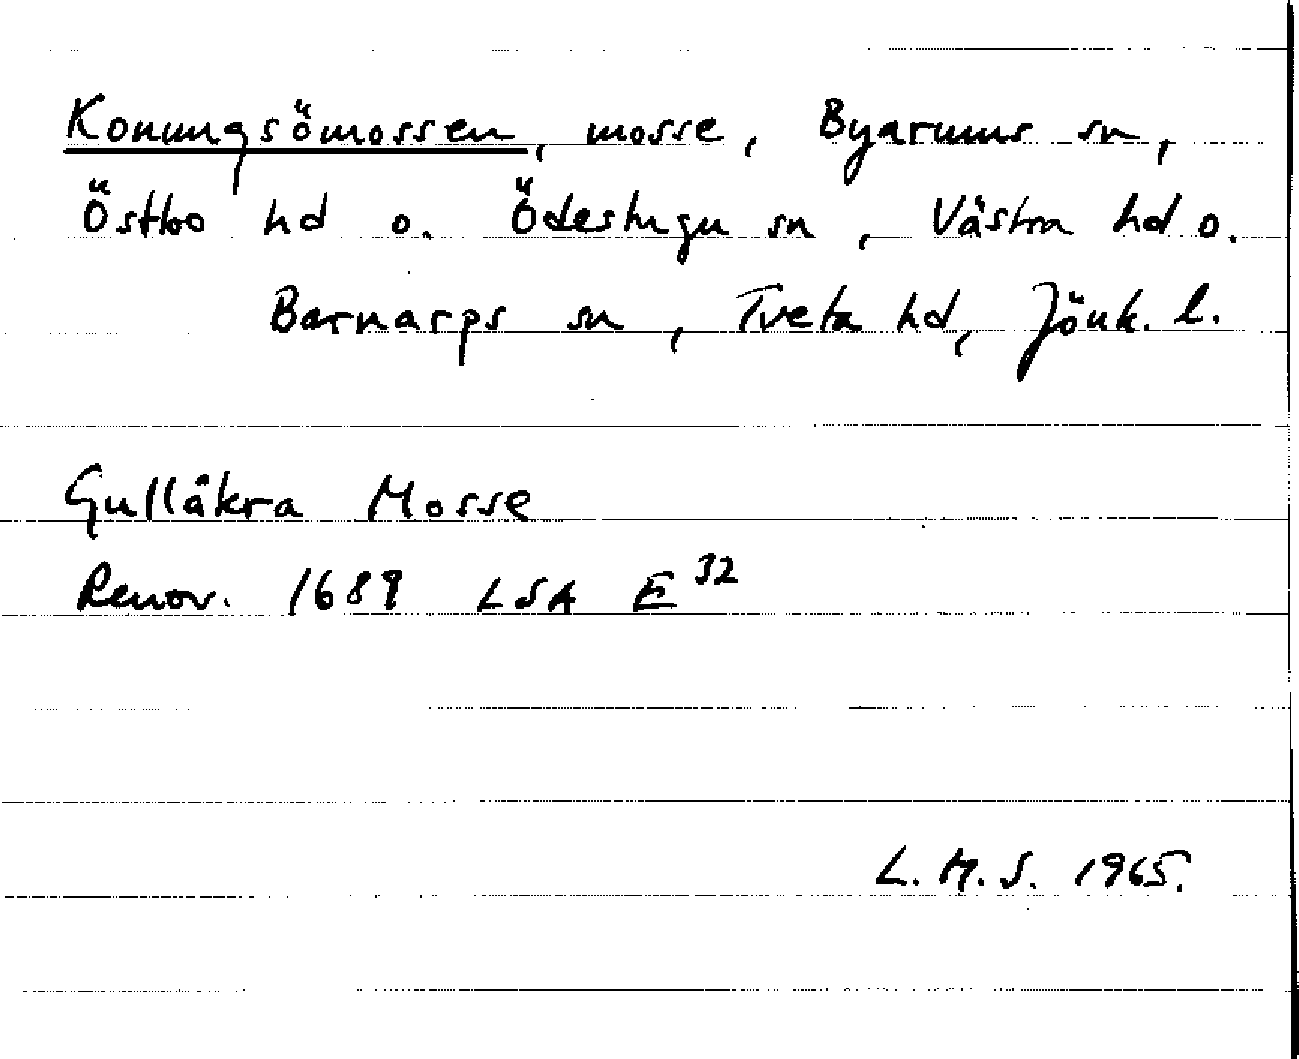 Konungsömossen, mosse, Byarums sn,
Östbo hd o. Ödestugu sn, Västra hd o.
Barnarps sn, Tveta hd, Jönk. l.
Gullåkra Mosse
Renov. 1689 LSA E 32
L.M.S. 1965.